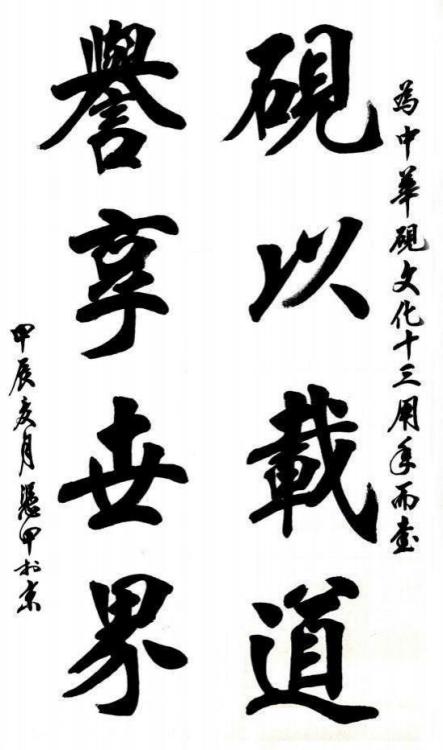 為中華硯文化十三周年而書
硯以載道
譽享世界
甲辰亥月 甲於京